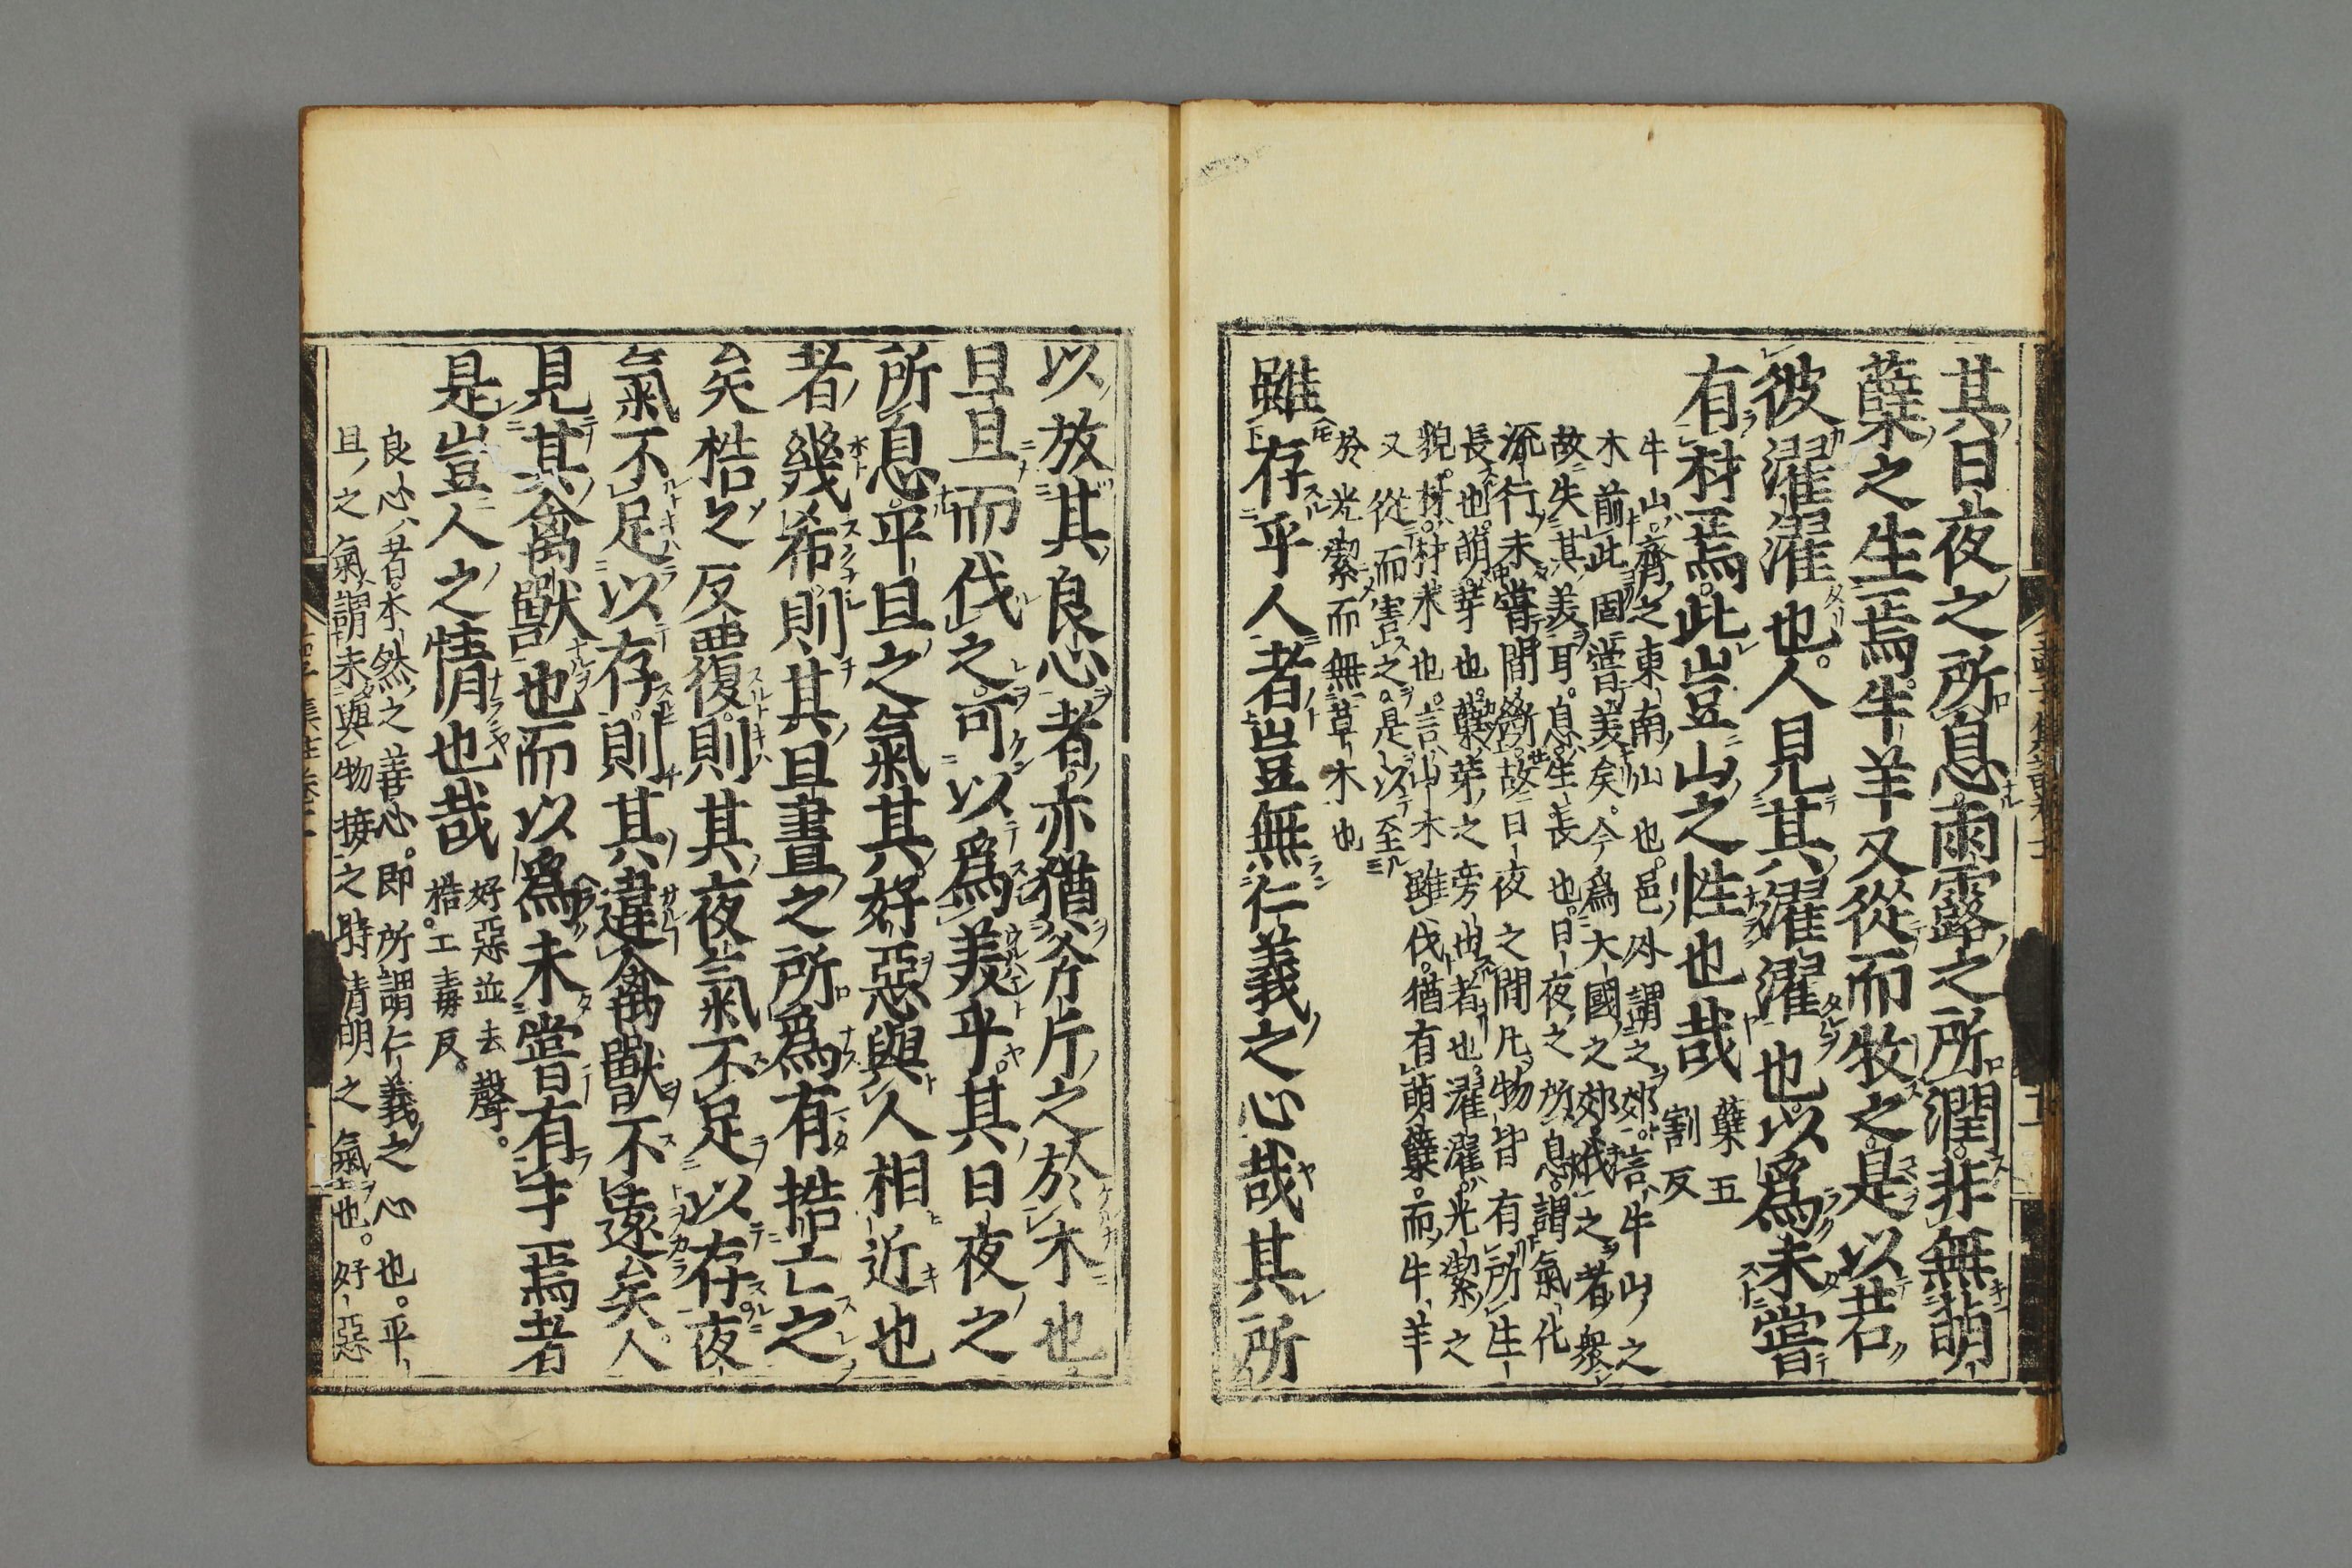 其日夜之所息雨露之所潤。非無萌
蘗之生焉。牛羊又從而牧之。是以若
彼濯濯也。人見其濯濯也以爲未嘗
有材焉。此豈山之性也哉
蘗五
割反
牛山。齊之東南山也。邑外謂之郊。言牛山之
木前此固嘗美矣。今爲大國之郊。伐之者衆
故失其美耳。息。生長也。日夜之所息。謂氣化
流行未嘗間斷。故日夜之間凡物皆有所生
長也。萌。芽也。蘗。芽之旁出者也。濯濯。光潔之
貌。材。材木也。言山木雖伐。猶有萌蘗。而牛羊
又從而害之。是以至
於光潔而無草木也
雖存乎人者豈無仁義之心哉其所
以放其良心者。亦猶斧斤之於木也
旦旦而伐之。可以爲美乎。其日夜之
所息。平旦之氣其好惡與人相近也
者幾希。則其旦晝之所爲有梏亡之
矣梏之反覆。則其夜氣不足以存夜
氣不足以存。則其違禽獸不遠矣。人
見其禽獸也而以爲未嘗有才焉者
是豈人之情也哉
好惡並去聲。
梏。工毒反。
良心者。本然之善心。即所謂仁義之心也。平
旦之氣。謂未與物接之時清明之氣也。好惡